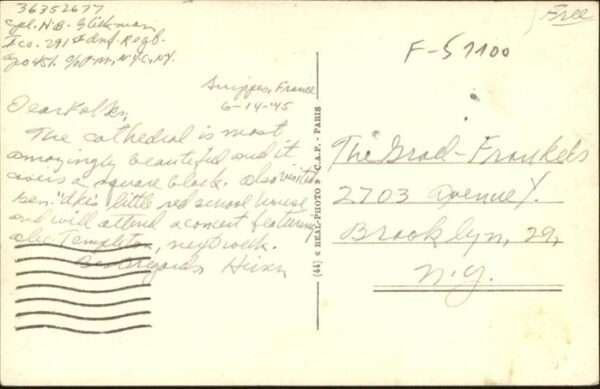 36352677
Cpl. H.B. Glickman
I Co. 291st Inf. Regt.
Apo 451, c/o P.M., N.Y.C., N.Y.
Free
F-57100
Suippes, France
6-14-45
Dear Folks,
The cathedral is most
amazingly beautiful and it
covers a square block. Also visited
Gen. Ike's little red school house
and will attend a concert featuring
Alec Templeton, next week.
Best Regards,
(44) © REAL-PHOTO C.A.P. - PARIS
The Grad-Frankels
2703 Avenue Y.
Brooklyn, 29,
N.Y.